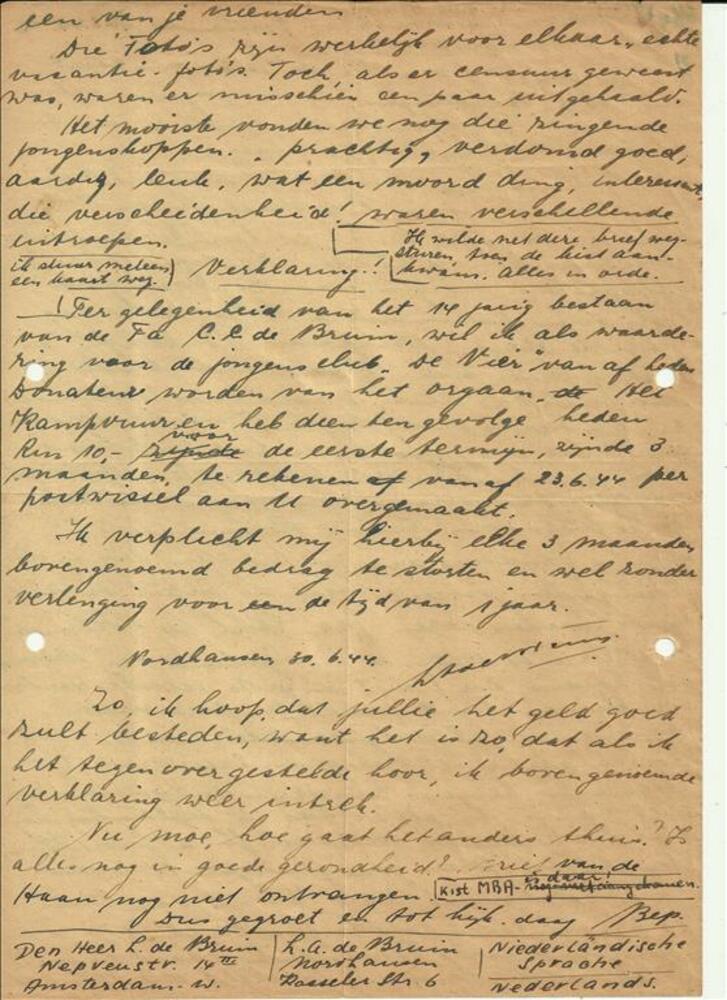 een van je vrienden
Die Foto's zijn werkelijk voor elkaar, echte
vacantie-foto's. Toch, als er censuur geweest
was, waren er misschien een paar uitgehaald.
Het mooiste vonden we nog die zingende
jongenskoppen. "prachtig, verdomd goed,
aardig, leuk, wat een moord ding, interessant,
die verscheidenheid! waren verschillende
uitroepen.
Ik wilde net deze brief weg-
sturen, toen de kist aan-
kwam. Alles in orde.
ik stuur meteen
een kaart weg.
Verklaring!!
Ter gelegenheid van het 14 jarig bestaan
van de Fa C.C. de Bruin, wil ik als waarde-
ring voor de jongensclub "De Vier" van af heden
Donateur worden van het orgaan, de Het
Kampvuur en heb dien ten gevolge heden
Rm 10,- zijnde voor de eerste termijn, zijnde 3
maanden, te rekenen af vanaf 23.6.44 per
postwissel aan U overgemaakt.
Ik verplicht mij hierbij elke 3 maanden
bovengenoemd bedrag te storten en wel zonder
verlenging voor een de tijd van 1 jaar.
Nordhausen 30.6.44.
Zo, ik hoop, dat jullie het geld goed
zult besteden, want het is zo, dat als ik
het tegenovergestelde hoor, ik bovengenoemde
verklaring weer intrek.
Nu moe, hoe gaat het anders thuis? Is
alles nog in goede gezondheid? Brief van de
Haan nog niet ontvangen. Kist MBA- is daar!
Dus gegroet en tot kijk. daag Bep.
Den Heer L. de Bruin
Nepveustr. 14 III
Amsterdam-W.
L.A. de Bruin
Nordhausen
Kasseler Str. 6
Niederländische
Sprache
Nederlands.